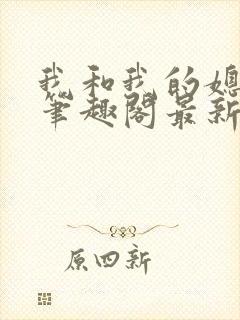 我和我的媳
笔趣阁最新
原四新